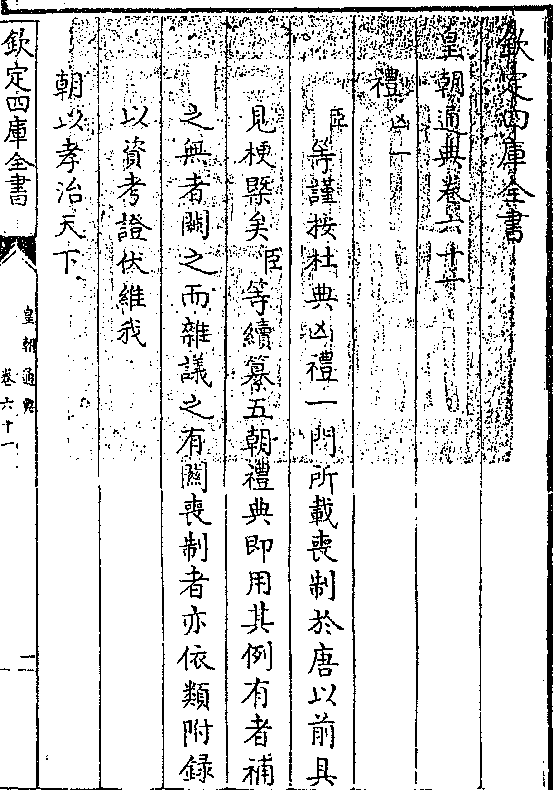 欽定四庫全書
皇朝通典卷六十一
禮
凶一
臣等謹按杜典凶禮一門所載喪制於唐以前具
見梗槩矣臣等續纂五朝禮典即用其例有者補
之無者闕之而雜議之有關喪制者亦依類附錄
以資考證伏維我
朝以孝治天下
欽定四庫全書
皇朝通典
卷六十一
一